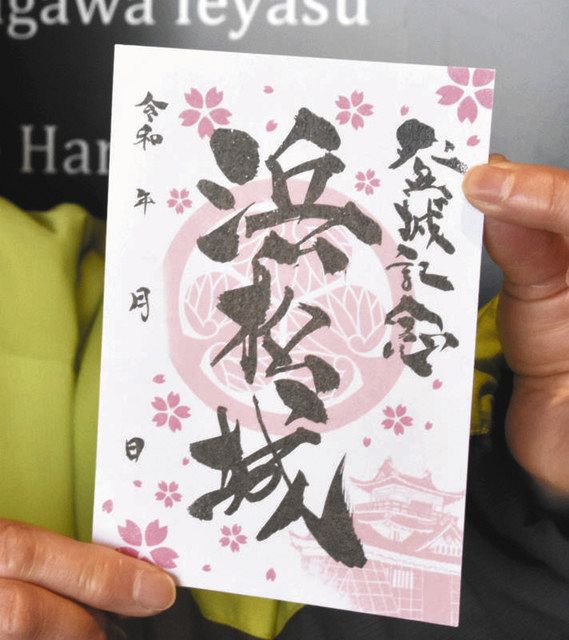 gawa Ieyasu
Har
登城記念
浜松城
令和 年 月 日